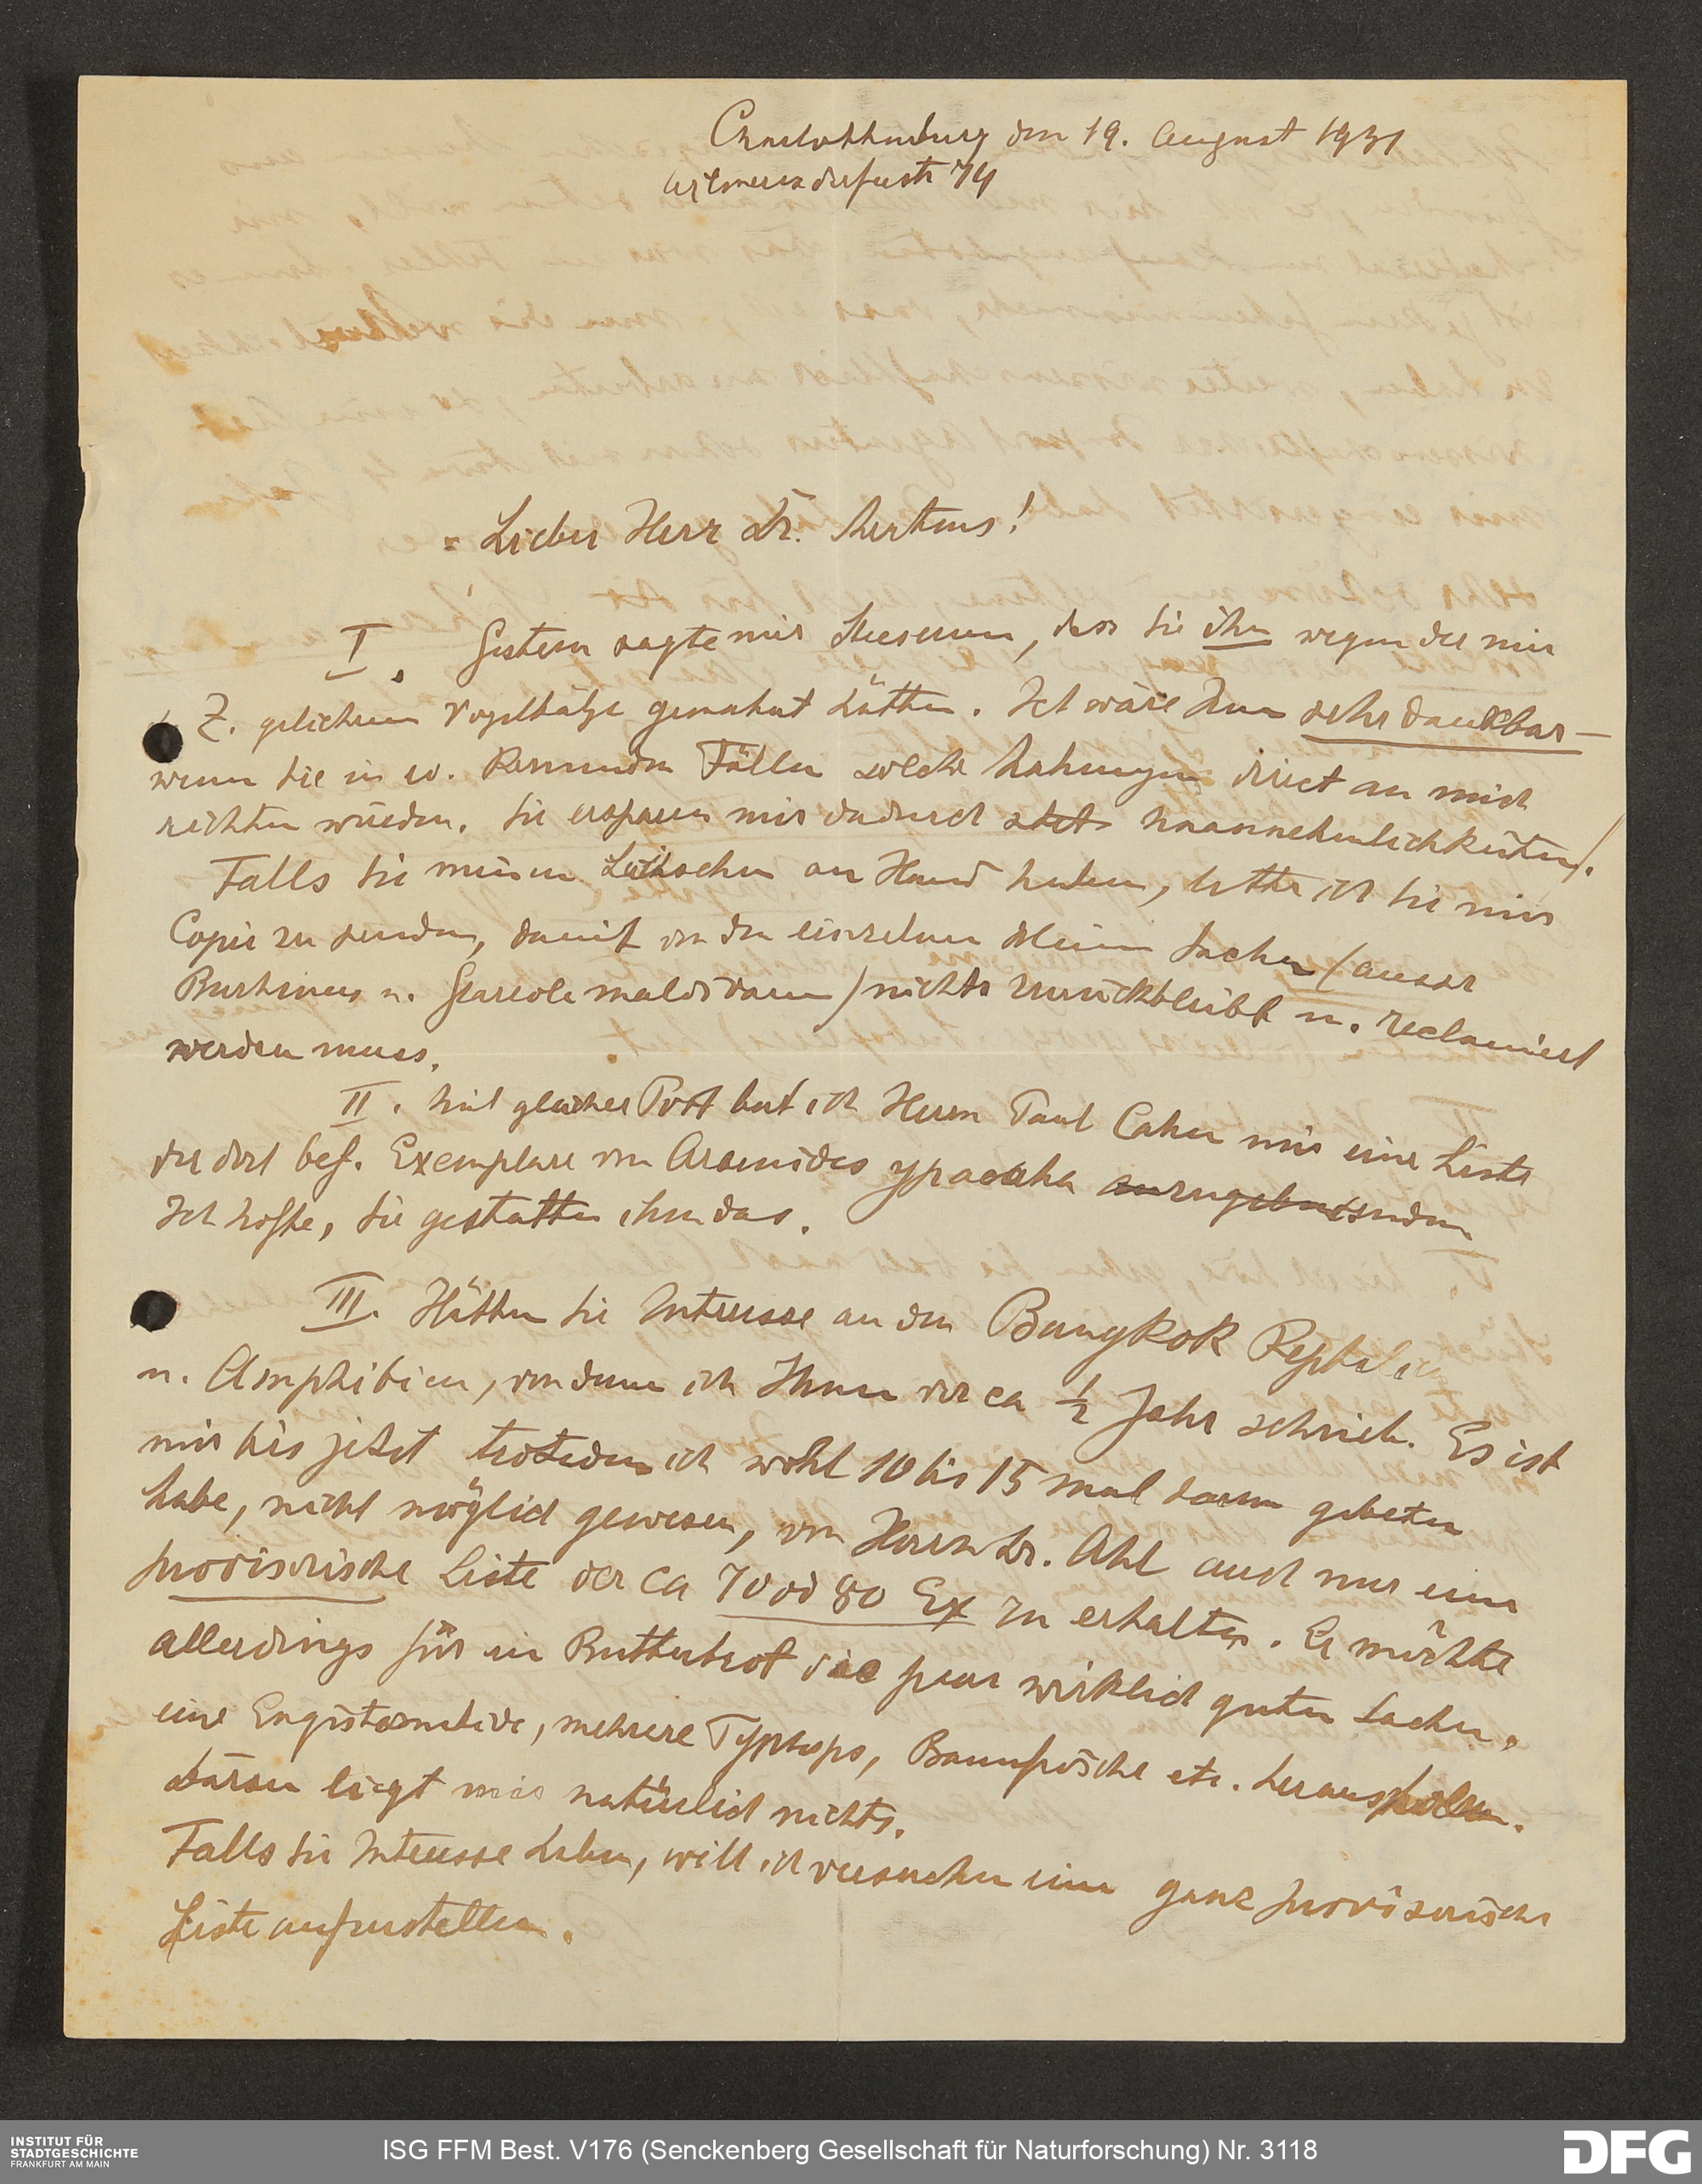 Charlottenburg den 19. August 1931
Wilmersdorferstr 74
Lieber Herr Dr. Mertens!
I. Gestern sagte mir Stresemann, dass Sie ihn wegen der mir
s. Z. geliehenen Vogelbälge gemahnt hätten. Ich wäre Ihnen sehr dankbar –
wenn Sie in ev. kommenden Fällen solche Mahnungen direct an mich
richten würden. Sie ersparen mir dadurch stets Unannehmlichkeiten!
Falls Sie meinen Leihschein an Hand haben, bitte ich Sie mir
Copie zu senden, damit von den einzelnen kleinen Sachen (ausser
Burhinus u. Glareola maldivarum) nichts zurückbleibt u. reclamiert
werden muss.
II. Mit gleicher Post bat ich Herrn Paul Cahn mir eine Liste
der dort bef. Exemplare von Aramides ypacaha zusenden
Ich hoffe, Sie gestatten ihm das.
III. Hätten Sie Interesse an den Bangkok Reptilien
u. Amphibien, von denen ich Ihnen vor ca ½ Jahr schrieb. Es ist
mir bis jetzt trotzdem ich wohl 10 bis 15 mal darum gebeten
habe, nicht möglich gewesen, von Herrn Dr. Ahl auch nur eine
provisorische Liste der ca 70 od 80 Ex zu erhalten. Er möchte
allerdings für ein Butterbrot die paar wirklich guten Sachen,
eine Engistomatide, mehrere Typhlops, Baumfrösche etc. herausholen.
daran liegt mir natürlich nichts.
Falls Sie Interesse haben, will ich versuchen eine ganz provisorische
Liste aufzustellen.
INSTITUT FÜR
STADTGESCHICHTE
FRANKFURT AM MAIN
ISG FFM Best. V176 (Senckenberg Gesellschaft für Naturforschung) Nr. 3118
DFG